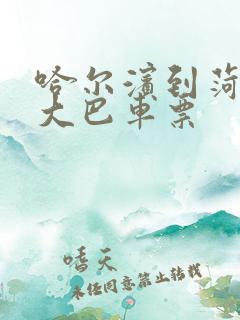 哈尔滨到菏
大巴车票
嗜天
未经同意禁止转载